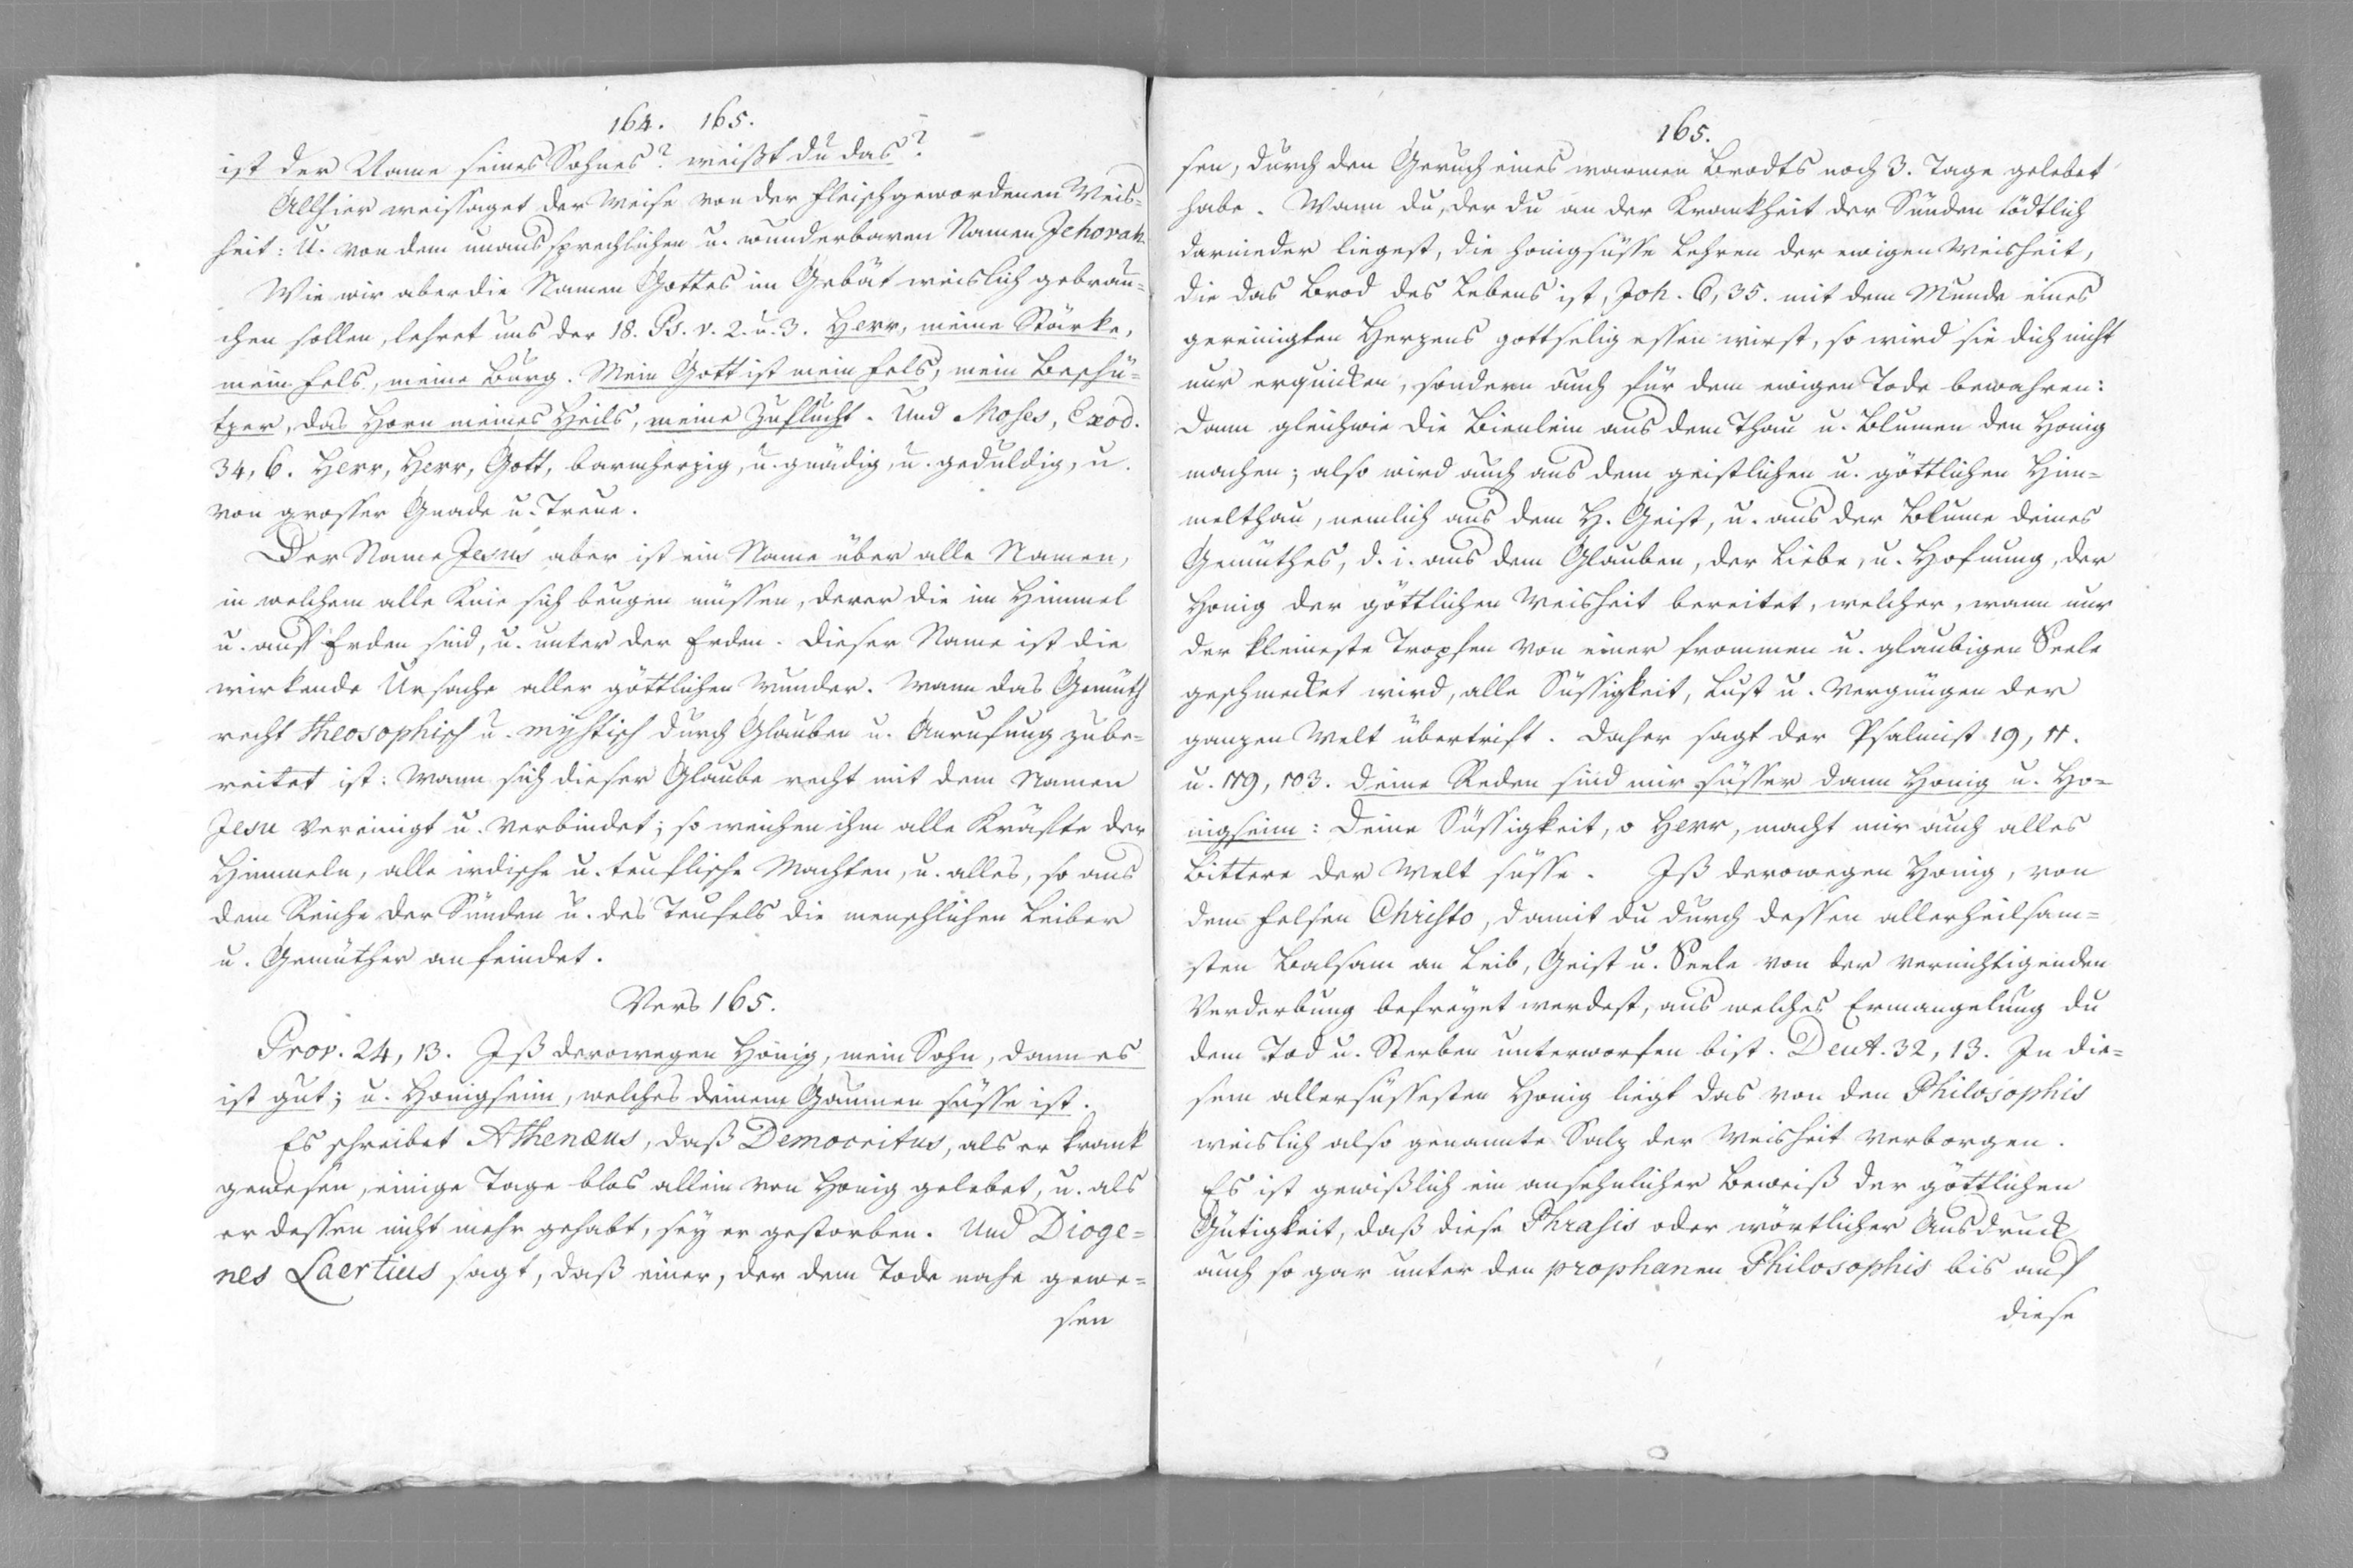 164. 165.
ist der Name seines Sohnes? weißt du das?
Allhier weissaget der Weise von der fleischgewordenen Weis-
heit: U. von dem unaussprechlichen u. wunderbaren Namen Jehovah.
Wie wir aber die Namen Gottes im Gebät weislich gebrau-
chen sollen, lehret uns der 18. Ps. v. 2. u. 3. Herr, meine Stärke,
mein Fels, meine Burg. Mein Gott ist mein Fels, mein Beschü-
tzer, das Horn meines Heils, meine Zuflucht. Und Moses, Exod.
34, 6. Herr, Herr, Gott, barmherzig, u. gnädig, u. geduldig, u.
von grosser Gnade u. Treue.
Der Name Jesus aber ist ein Name über alle Namen,
in welchem alle Knie sich beugen müssen, derer die im Himmel
u. auf Erden sind, u. unter der Erden. Dieser Name ist die
wirkende Ursache aller göttlichen Wunder. Wann das Gemüth
recht theosophisch u. mystisch durch Glauben u. Anrufung zube-
reitet ist: Wann sich dieser Glaube recht mit dem Namen
Jesu vereinigt u. verbindet; so weichen ihm alle Kräfte der
Himmeln, alle irdische u. teuflische Machten, u. alles, so aus
dem Reiche der Sünden u. des Teufels die menschlichen Leiber
u. Gemüther anfeindet.
Vers 165.
Prov. 24, 13. Iß derowegen Honig, mein Sohn, dann es
ist gut; u. Honigseim, welches deinem Gaumen süsse ist.
Es schreibet Athenæus, daß Democritus, als er krank
gewesen, einige Tage blos allein von Honig gelebet, u. als
er dessen nicht mehr gehabt, sey er gestorben. Und Dioge-
nes Laertius sagt, daß einer, der dem Tode nahe gewe-
sen
165.
sen, durch den Geruch eines warmen Brodts noch 3. Tage gelebet
habe. Wann du, der du an der Krankheit der Sünden tödtlich
darnieder liegest, die honigsüsse Lehren der ewigen Weisheit,
die das Brod des Lebens ist, Joh. 6, 35. mit dem Munde eines
gereinigten Herzens gottselig essen wirst, so wird sie dich nicht
nur erquicken, sondern auch für dem ewigen Tode bewahren:
Dann gleichwie die Bienlein aus dem Thau u. Blumen den Honig
machen; also wird auch aus dem geistlichen u. göttlichen Him-
melthau, nemlich aus dem H. Geist, u. aus der Blume deines
Gemüthes, d. i. aus dem Glauben, der Liebe, u. Hofnung, der
Honig der göttlichen Weisheit bereitet, welcher, wann nur
der kleineste Tropfen von einer frommen u. glaubigen Seele
geschmecket wird, alle Süssigkeit, Lust u. Vergnügen der
ganzen Welt übertrift. Daher sagt der Psalmist 19, 11.
u. 119, 103. Deine Reden sind mir süsser dann Honig u. Ho-
nigseim: Deine Süssigkeit, o Herr, macht mir auch alles
Bittere der Welt süsse. Iß derowegen Honig, von
dem Felsen Christo, damit du durch dessen allerheilsam-
sten Balsam an Leib, Geist u. Seele von der vernichtigenden
Verderbung befreyet werdest, aus welches Ermangelung du
dem Tod u. Sterben unterworfen bist. Deut. 32, 13. In die-
sem allersüssesten Honig liegt das von den Philosophis
weislich also genannte Salz der Weisheit verborgen.
Es ist gewißlich ein ansehnlicher Beweiß der göttlichen
Gütigkeit, daß diese Phrasis oder wörtlicher Ausdruck
auch so gar unter den prophanen Philosophis bis auf
diese